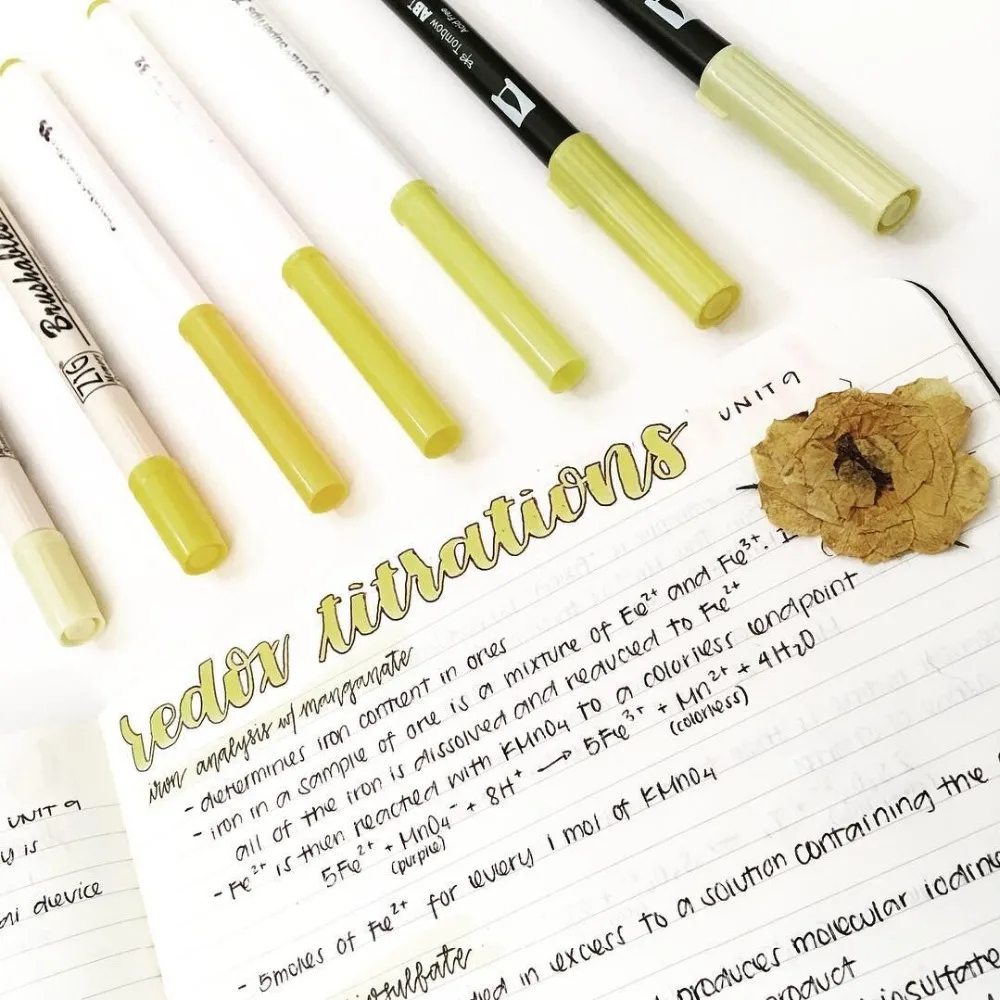 Tombow ABT
Acid Free
ZIG
UNIT 9
redox titrations
iron analysis w/ manganate
- determines iron content in ores
- iron in a sample of ore is a mixture of Fe²⁺ and Fe³⁺.
all of the iron is dissolved and reduced to Fe²⁺
- Fe²⁺ is then reacted with KMnO4 to a colorless endpoint
5Fe²⁺ + MnO₄⁻ + 8H⁺ → 5Fe³⁺ + Mn²⁺ + 4H₂O
(purple) (colorless)
- 5 moles of Fe²⁺ for every 1 mol of KMnO4
in excess to a solution containing the
produces molecular
product
UNIT 9
y is
device